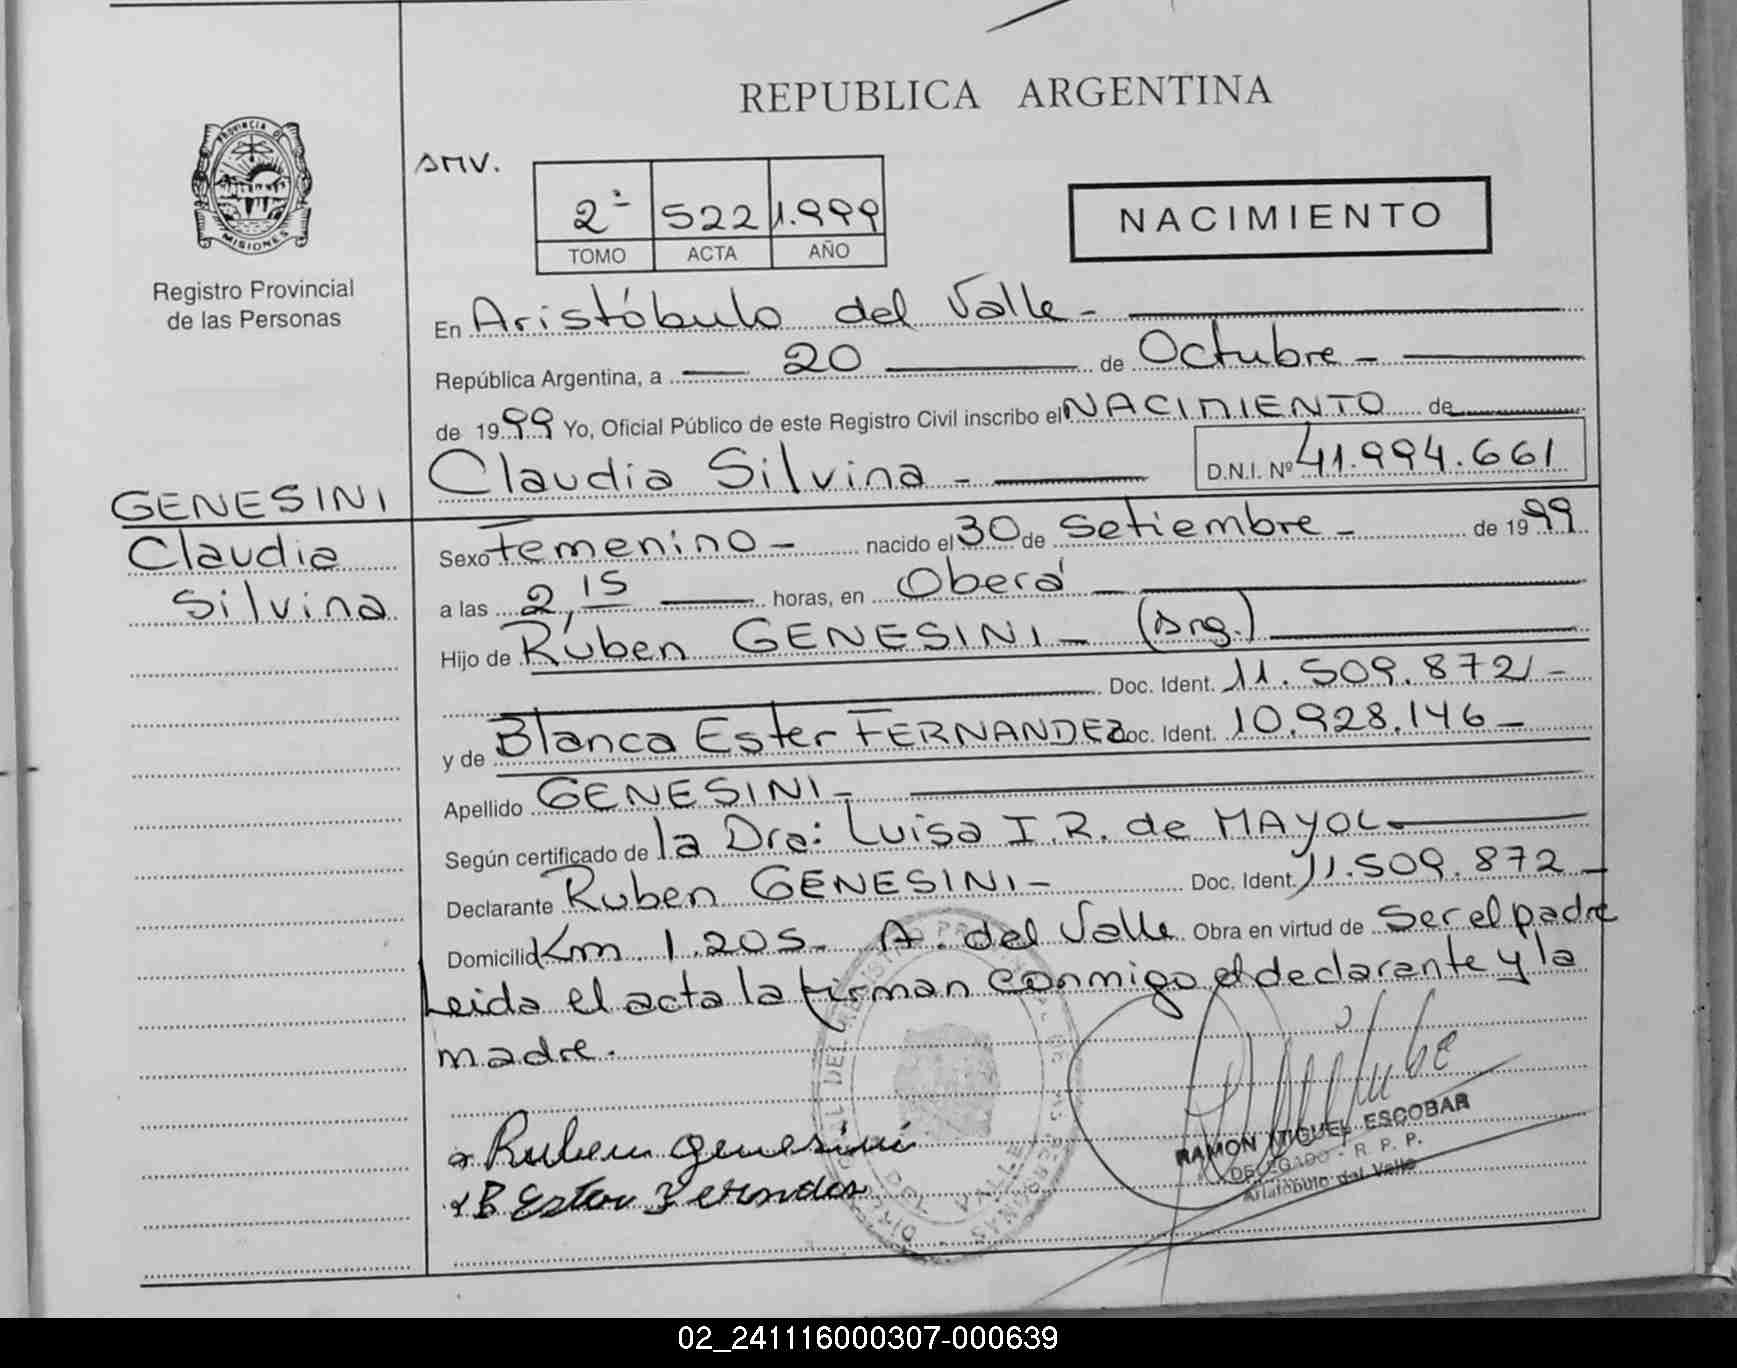 REPUBLICA ARGENTINA
PROVINCIA DE
MISIONES
Registro Provincial
de las Personas
SMV.
2º 522 1.999
TOMO ACTA AÑO
NACIMIENTO
En Aristóbulo del Valle -
República Argentina, a 20 de Octubre -
de 1999 Yo, Oficial Público de este Registro Civil inscribo el NACIMIENTO de
Claudia Silvina - D.N.I. Nº 41.994.661
GENESINI
Claudia
Silvina
Sexo Femenino - nacido el 30 de Setiembre - de 1999
a las 2,15 horas, en Oberá
Hijo de Rúben GENESINI - (Arg.)
Doc. Ident. 11.509.872 -
y de Blanca Ester FERNANDEZ Doc. Ident. 10.928.146 -
Apellido GENESINI -
Según certificado de la Dra: Luisa I.R. de MAYOL
Declarante Ruben GENESINI - Doc. Ident. 11.509.872 -
Domicilio Km. 1.205 - A. del Valle Obra en virtud de Ser el padre
Leida el acta la firman conmigo el declarante y la
madre.
Ruben genesini
B Ester Fernandes
RAMON MIGUEL ESCOBAR
DELEGADO - R. P. P.
Aristóbulo del Valle
02_241116000307-000639